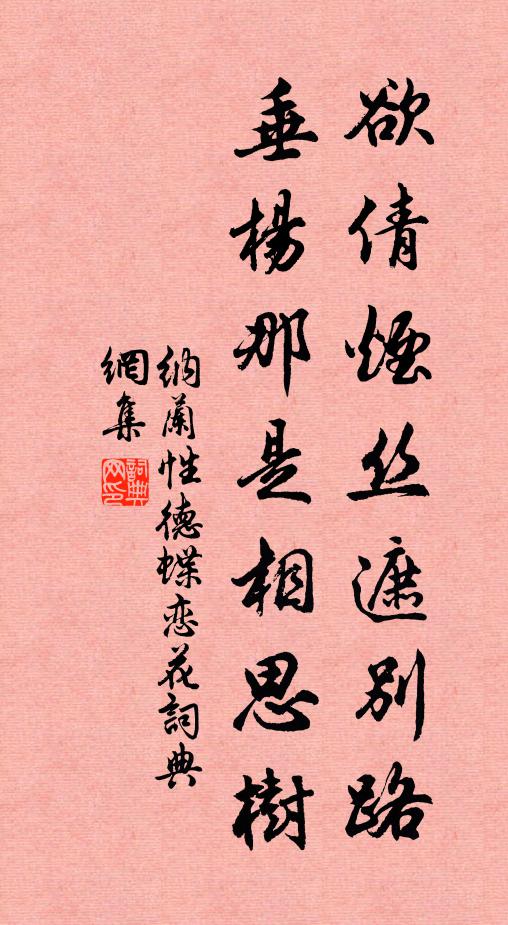 欲倩煙丝遮别路
垂楊那是相思樹
納蘭性德蝶恋花詞典
網集
詞典
网印